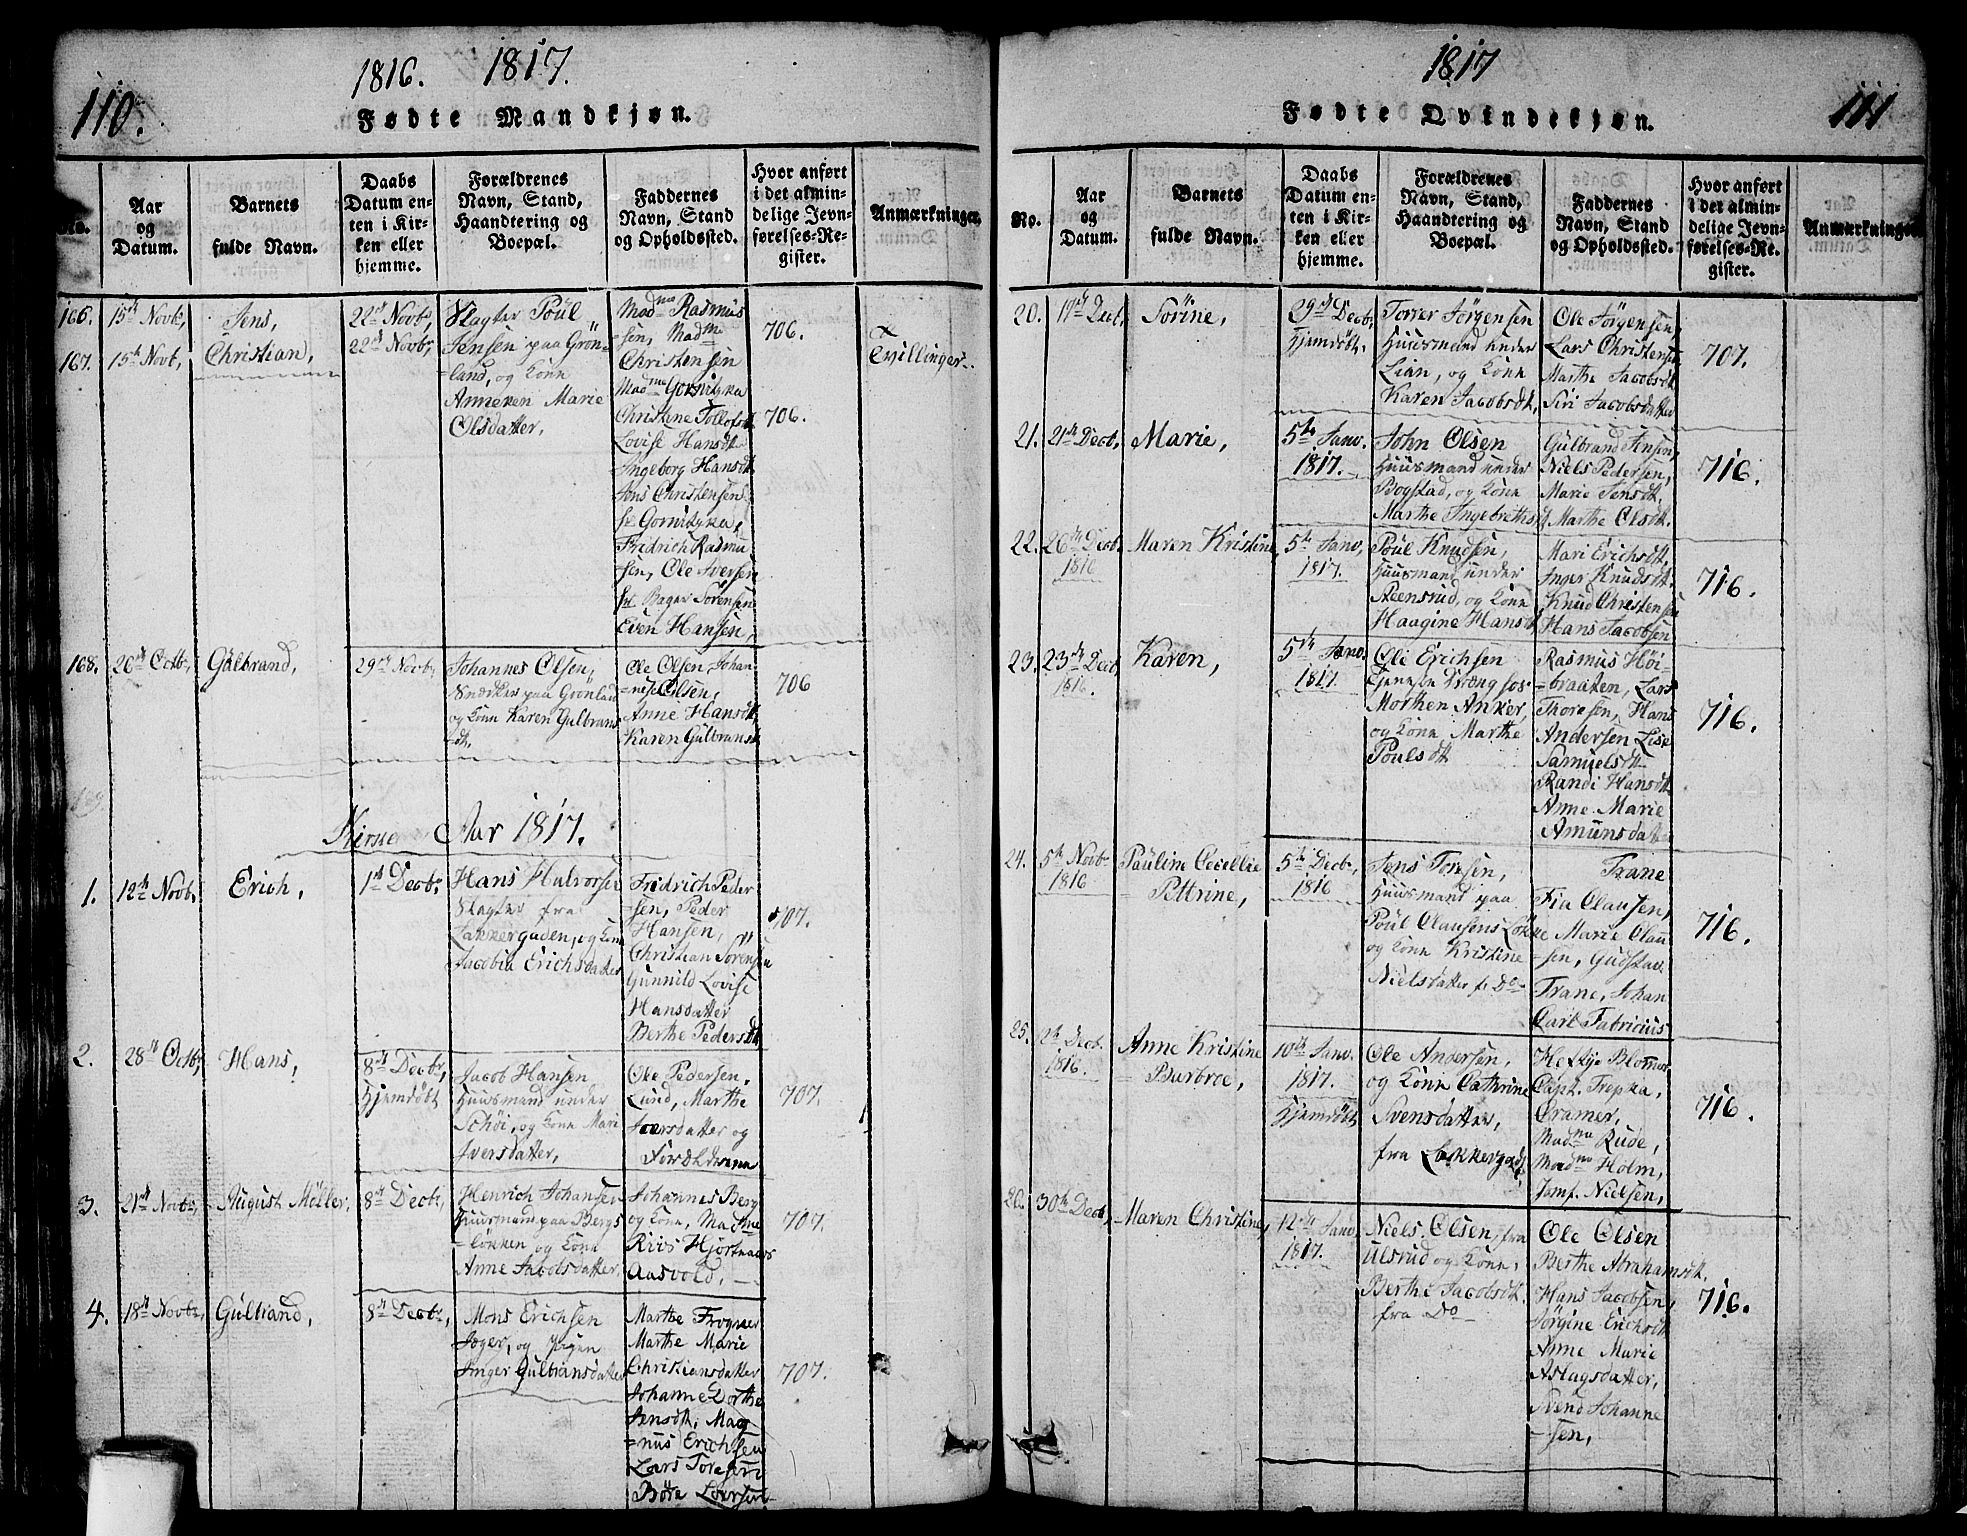 110.
1816. 1817.
Fødte Mandkjøn.
No.
Aar
og
Datum.
Barnets
fulde Navn.
Daabs
Datum en-
ten i Kir-
ken eller
hjemme.
Forældrenes
Navn, Stand,
Haandtering og
Boepæl.
Faddernes
Navn, Stand
og Opholdssted.
Hvor anført
i det almin-
delige Jevn-
førelses-Re-
gister.
Anmærkninger.
166. 15de Novbr,
Jens,
22de Novbr,
Slagter Poül
Jensen paa Grön-
land, og Kone
Anneken Marie
Olsdatter,
Madme Rasmus
sen, Madme
Christensen
Madme Gornitzka
Christene Tollofsdt
Lovise Hansdt
Ingeborg Hansdt
Jens Christensen
Gornitzka,
Fridrich Rasmu
sen, Ole Iversen
Bager Sörensen
Even Hansen,
706.
Tvillinger.
167. 15de Novb,
Christian,
22de Novbr,
706.
168. 26de Octb,
Gülbrand,
29de Novb,
Johannes Olsen,
Snedker paa Grönland
og Kone Karen Gülbrans
dt,
Ole Olsen, Johan
nes Olsen,
Anne Hansdt
Karen Gülbransdt
706
Kirke Aar 1817.
1. 12te Novb,
Erich,
1ste Decbr
Hans Halvorsen
Slagter fra
Lakkergaden, og Kone
Jacobia Erichsdatter
Fridrich Peder
sen, Peder
Hansen,
Christian Sörensen
Gunnild Lovise
Hansdatter
Berthe Pedersdt
707.
2. 28de Octbr,
Hans,
8de Decbr,
Hjemdöbt
Jacob Hansen
Huusmand under
Schöi, og Kone Mari
Iversdatter,
Ole Pedersen,
Lund, Marthe
Iversdatter og
707.
3. 21de Novbr,
August Möller,
8de Decbr,
Henrich Johansen
Huusmand paa Bergs
=løkken og Kone
Anne Jacobsdatter,
Johannes Berg
og Kone, Madme
Riis Hjortnaas
Aasvold,
707.
4. 18de Novbr,
Gülbrand,
8de Decbr,
Mons Erichsen
Jæger, og Pigen
Inger Gülbransdatter
Marthe Frogner
Marthe Marie
Christiansdatter
Johanne Dorthe
Jensdt, Mag
=nus Erichsen
Lars Toresen
Börn Larsen
707.
111
1817
Fødte Qvindekjøn.
No.
Aar
og
Datum.
Barnets
fulde Navn.
Daabs
Datum en-
ten i Kir-
ken eller
hjemme.
Forældrenes
Navn, Stand,
Haandtering og
Boepæl.
Faddernes
Navn, Stand
og Opholdssted.
Hvor anført
i det almin-
delige Jevn-
førelses-Re-
gister.
Anmærkninger.
20. 17de Decb,
Sörine,
29de Decb,
Hjemdöbt.
Torer Jörgensen
Huusmand under
Lian, og Kone
Karen Jacobsdt,
Ole Jörgensen,
Lars Christensen
Marthe Jacobsdt
Siri Jacobsdatter
707.
21. 21de Decb,
Marie,
5te Janv.
1817.
John Olsen
Huusmand under
Bogstad, og Kone
Marthe Ingebrethsd
Gülbrand Jensen,
Niels Pedersen,
Marie Jensdt,
Marthe Olsdt.
716.
22. 26de Decb,
1816
Maren Kristine
5te Janv,
1817.
Poül Knudsen,
Huusmand under
Steensrud, og Kone
Haagine Hansdt
Mari Erichsdt
Inger Knudsdt.
Knud Christensen
Hans Jacobsen
716.
23. 23de Decb,
1816.
Karen,
5te Janv.
1817
Ole Erichsen
tjenende Dreng hos
Morthen Anker,
og Kone Marthe
Poulsdt
Rasmus Höi-
=braaten, Lars
Thoresen, Hans
Andersen Lise
Samuelsdt
Randi Hansdt
Anne Marie
Amünsdatter
716.
24. 5te Novbr
1816
Pauline Cecillie
Pettrine,
5te Decbr,
1816
Jens Toresen,
Huusmand paa
Poül Clausens Lökke
og Kone Kristine
Nielsdatter fr Do
Trane
Fia Clausen,
Marie Clau
sen, Gudstav
Trane, Johan
Carl Fabricius
716.
25. 2de Decb.
1816.
Anne Kristine
Burbroe,
10de Janv.
1817.
Hjemdöbt
Ole Andersen,
og Kone Cathrine
Svensdatter,
fra Lakkergad,
Heftye Blomer
Capt. Trepka,
Cramer,
Madme Rude,
Madme Holm,
Jomf. Nielsen,
716.
26. 30de Decb,
Maren Christine,
12te Janv.
1817.
Niels Olsen, fra
Ulsrud og Kone,
Berthe Jacobsdt.
fra Do
Ole Olsen
Berthe Abrahamsdt.
Hans Jacobsen,
Jörgine Erichsdt
Anne Marie
Aslagsdatter,
Svend Johanne
=sen,
716.